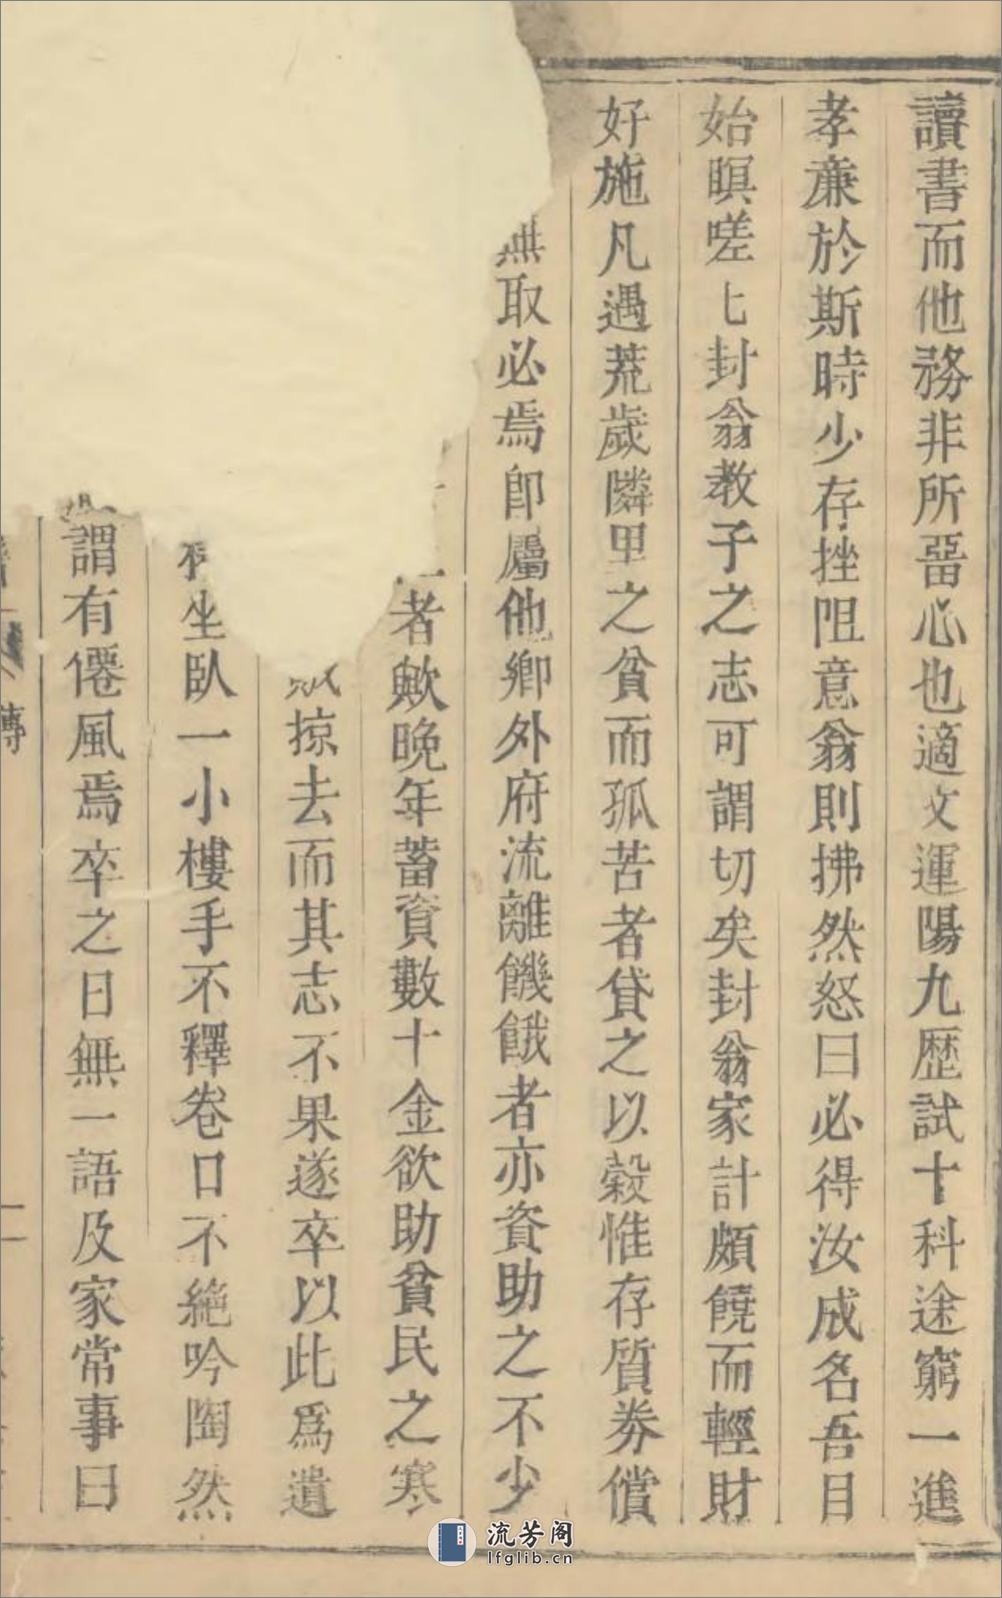 讀書而他務非所畱心也適文運陽九歷試十科途窮一進
孝亷於斯時少存挫阻意翁則拂然怒曰必得汝成名吾目
始瞑嗟匕封翁教子之志可謂切矣封翁家計頗饒而輕財
好施凡遇荒歲隣里之貧而孤苦者貸之以榖惟存質券償
無取必焉卽屬他鄉外府流離饑餓者亦資助之不少
者歟晚年蓄資數十金欲助貧民之寒
掠去而其志不果遂卒以此爲遺
坐臥一小樓手不釋卷口不絶吟陶然
謂有僊風焉卒之日無一語及家常事曰
傳
二
流芳阁
lfglib.cn